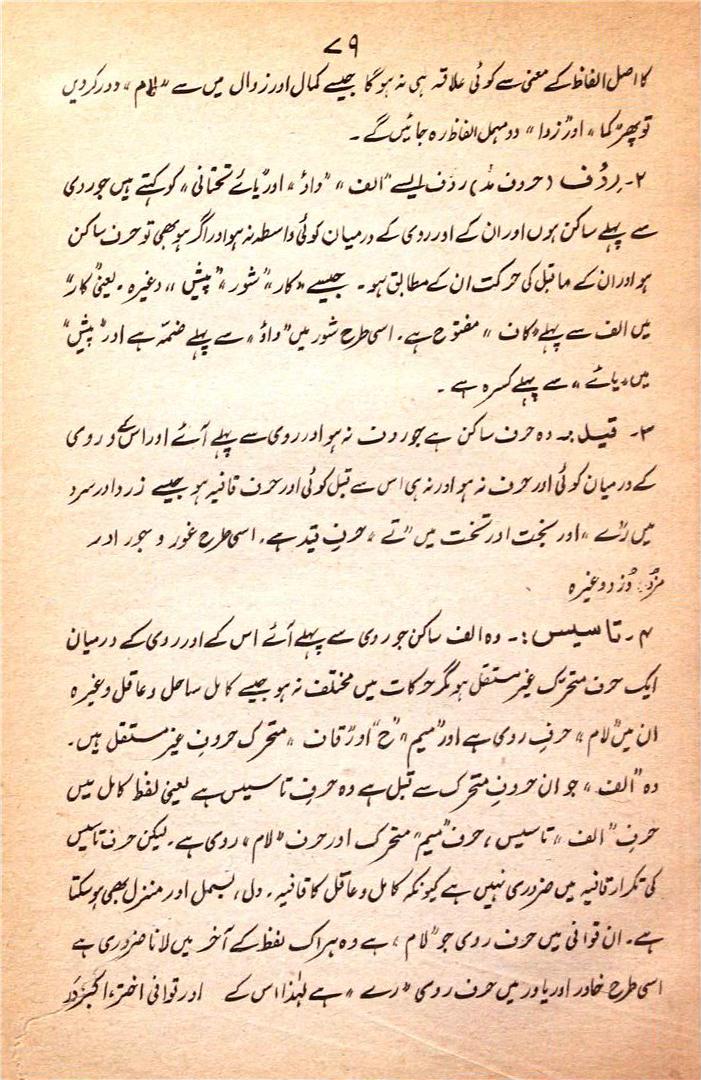 ۷۹
کا اصل الفاظ کے معنی سے کوئی علاقہ ہی نہ ہوگا جیسے کمال اور زوال میں سے "لام" دور کردیں
تو پھر "کما" اور "زوا" دو مہمل الفاظ رہ جائیں گے ۔
۲۔ رِدُف (حروف مدّ) ردف ایسے "الف" "واؤ" اور "یائے تحتانی" کو کہتے ہیں جو ردی
سے پہلے ساکن ہوں اور ان کے اور روی کے درمیان کوئی واسطہ نہ ہو اور اگر ہو بھی تو حرف ساکن
ہو اور ان کے ماقبل کی حرکت ان کے مطابق ہو ۔ جیسے "کار" "شور" "پیش" وغیرہ ۔ یعنی "کار"
میں الف سے پہلے "کاف" مفتوح ہے ۔ اسی طرح شور میں "واؤ" سے پہلے ضمّہ ہے اور "پیش"
میں "یائے" سے پہلے کسرہ ہے ۔
۳۔ قید :۔ وہ حرف ساکن ہے جو ردف نہ ہو اور روی سے پہلے آئے اور اس کے و روی
کے درمیان کوئی اور حرف نہ ہو اور نہ ہی اس سے قبل کوئی اور حرف قافیہ ہو جیسے زرد اور سرد
میں "رے" اور بخت اور تخت میں "تے" حرفِ قید ہے ۔ اسی طرح غور و جور اور
مزد : دُزد وغیرہ
۴۔ تاسیس :۔ وہ الف ساکن جو ردی سے پہلے آئے اس کے اور ردی کے درمیان
ایک حرف متحرک غیر مستقل ہو مگر حرکات میں مختلف نہ ہو جیسے کامل ساحل و عاقل وغیرہ
ان میں "لام" حرفِ ردی ہے اور "میم" "ح" اور "قاف" متحرک حروفِ غیر مستقل ہیں ۔
وہ "الف" جو ان حروفِ متحرک سے قبل ہے وہ حرفِ تاسیس ہے یعنی لفظ کامل میں
حرفِ "الف" تاسیس ، حرف "میم" متحرک اور حرف "لام" روی ہے ۔ لیکن حرف تاسیس
کی تکرار قافیہ میں ضروری نہیں ہے کیونکہ کامل و عاقل کا قافیہ ۔ دل ، بسمل اور منزل بھی ہو سکتا
ہے ۔ ان قوافی میں حرف ردی جو "لام" ہے وہ ہر اک لفظ کے آخر میں لانا ضروری ہے
اسی طرح خاور اور یاور میں حرف روی "رے" ہے لہٰذا اس کے اور قوافی اختر ، اکبر و